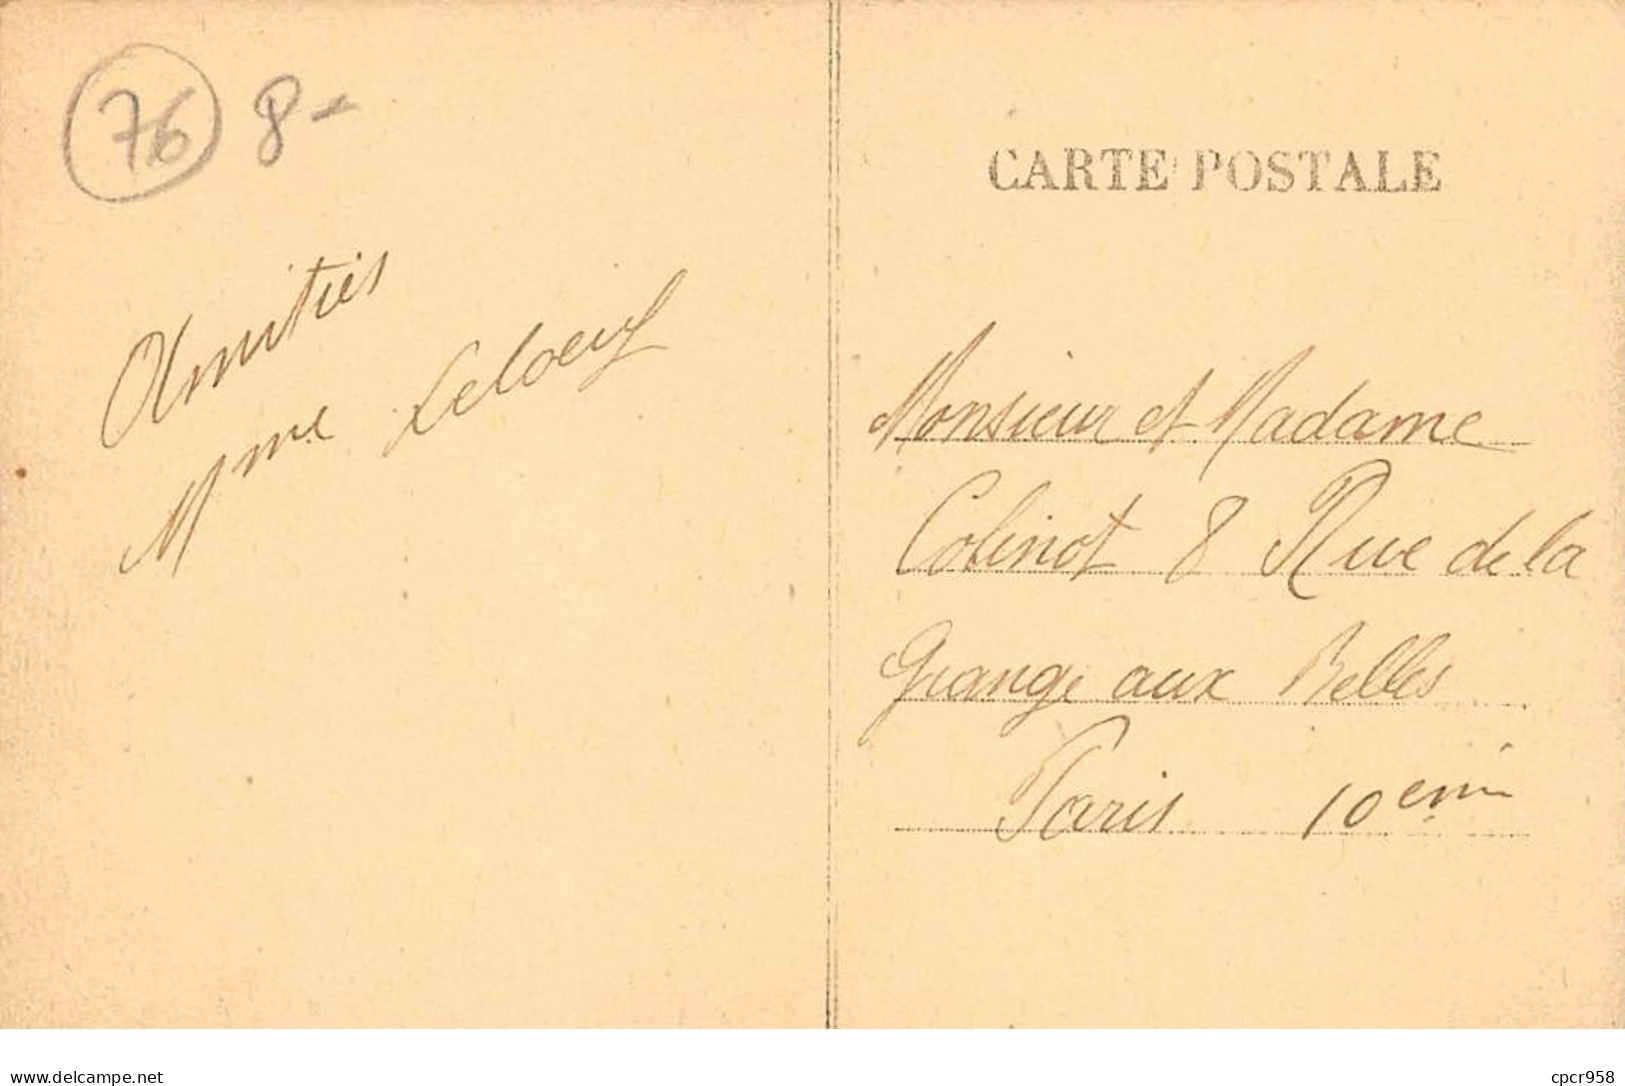 76 8-
Amitiés
Mme Leloeuf
CARTE POSTALE
Monsieur et Madame
Colinot 8 Rue de la
Grange aux Belles
Paris 10eme
www.delcampe.net
cpcr958